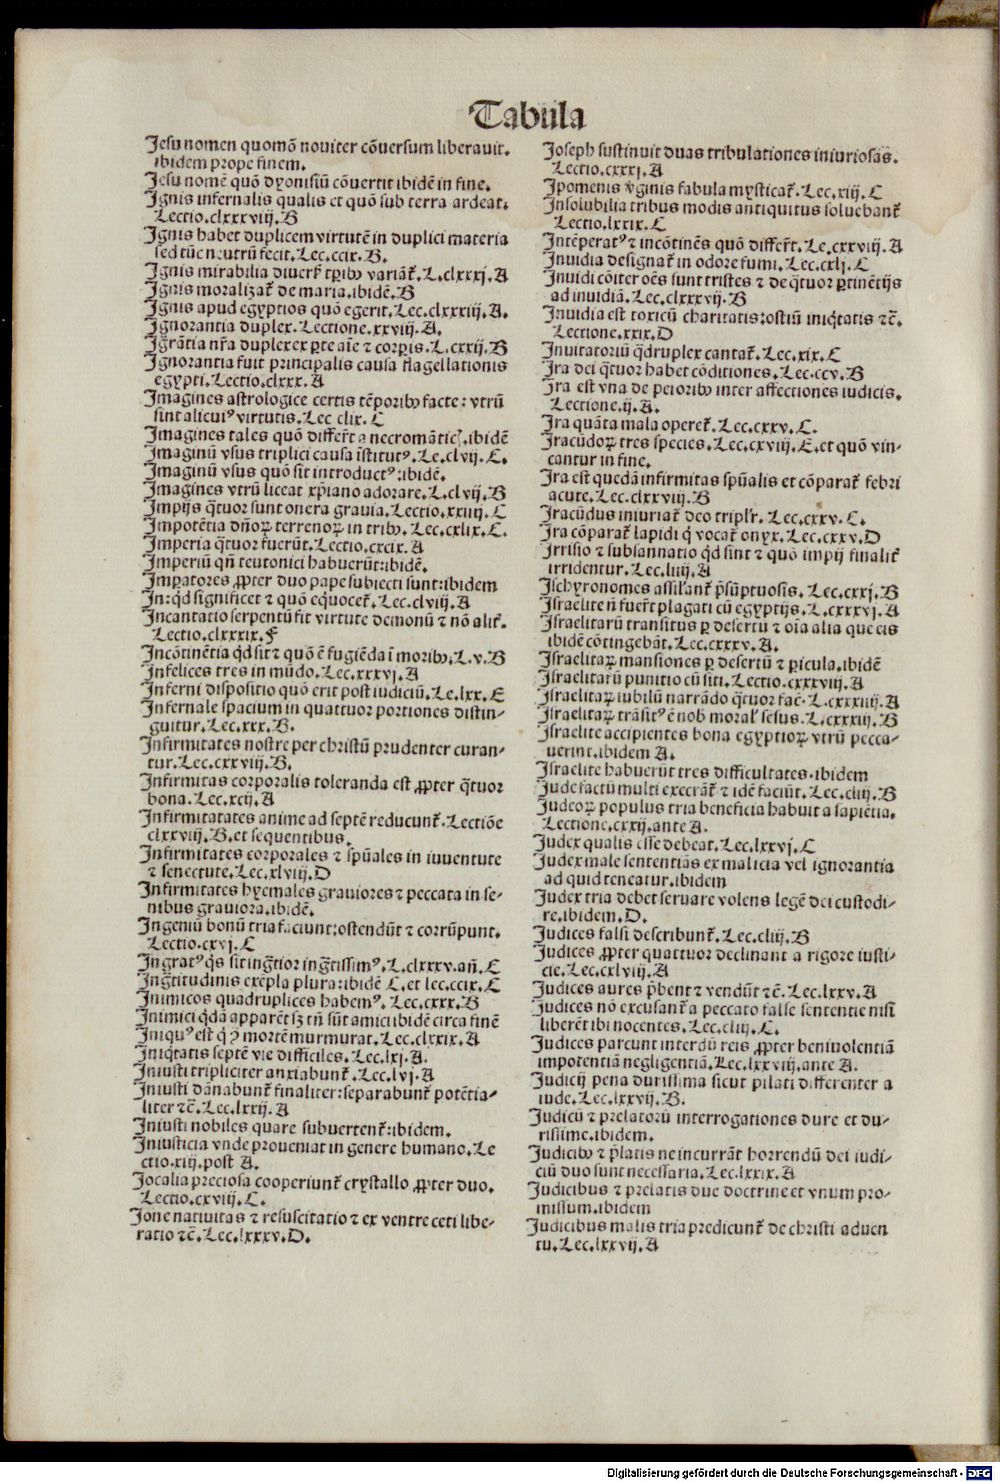 Tabula
Jesu nomen quomō noviter cōversum liberavit.
ibidem prope finem.
Jesu nomē quō dyonisiū cōvertit ibidē in fine.
Ignis infernalis qualis et quō sub terra ardeat.
Lectio.clxxxviij.B
Ignis habet duplicem virtutē in duplici materia
sed tūc neutrū fecit.Lec.ccix.B.
Ignis mirabilia diversꝭ tꝑibꝰ variāt᷑.L.clxxxj.A
Ignis moralizat᷑ de maria.ibidē.B
Ignis apud egyptios quō egerit.Lec.clxxxiij.A.
Ignorantia duplex.Lectione.xxviij.A.
Ig̃rātia nr̃a duplex ex ꝑte aīe ⁊ corꝑis.L.cxxij.B
Ignorantia fuit principalis causa flagellationis
egypti.Lectio.clxxx.A
Imagines astrologice certis tēporibꝰ facte: vtrū
sint alicuiꝰ virtutis.Lec clix.C
Imagines tales quō differt᷑ a necromātic̣.ibidē
Imaginū vsus triplici causa īstitutꝰ.Le.clvij.C.
Imaginū vsus quō sit introductꝰ:ibidē.
Imagines vtrū liceat xp̄iano adorare.L.clvij.B
Impijs q̄tuor sunt onera gravia.Lectio.xxiiij.C
Impotētia dn̄oꝝ terrenoꝝ in tribꝰ.Lec.cxlix.C.
Imperia q̄tuor fuerūt.Lectio.cxcix.A
Imperiū qn̄ teutonici habuerūt:ibidē.
Imꝑatores ꝓpter duo pape subiecti sunt:ibidem
In:qd significet ⁊ quō equocet᷑.Lec.clviij.A
Incantatio serpentū fit virtute demonū ⁊ nō alit᷑.
Lectio.clxxxix.F
Incōtinētia qd sit ⁊ quō ē fugiēda ī moribꝰ.L.v.B
Infelices tres in mūdo.Lec.xxxvj.A
Inferni dispositio quō erit post iudiciū.Le.lxx.E
Infernale spacium in quattuor portiones distin-
guitur.Lec.xxx.B.
Infirmitates nostre per christū prudenter curan-
tur.Lec.cxxviij.B.
Infirmitas corporalis toleranda est ꝓpter q̄tuor
bona.Lec.xcij.A
Infirmitatates anime ad septē reducunt᷑.Lectiōe
clxxviij.B.et sequentibus.
Infirmitates corporales ⁊ spūales in iuventute
⁊ senectute.Lec.xlviij.D
Infirmitates hyemales graviores ⁊ peccata in se-
nibus graviora.ibidē.
Ingeniū bonū tria faciunt:ostendūt ⁊ corrūpunt.
Lectio.cxvj.C
Ingratꝰ q̄s sit ing̃tior ing̃tissimꝰ.L.clxxxv.añ.C
Ing̃titudinis exēpla plura:ibidē C.et lec.ccix.C
Inimicos quadruplices habemꝰ.Lec.cxxx.B
Inimici qdā apparēt sꝫ tn̄ sūt amici ibidē circa finē
Iniquꝰ est q̇ ꝓ mortē murmurat.Lec.clxxix.A
Iniq̄tatis septē vie difficiles.Lec.lxj.A.
Iniusti tripliciter anxiabunt᷑.Lec.lvj.A
Iniusti dānabunt᷑ finaliter:separabunt᷑ potētia-
liter ⁊c̄.Lec.lxxij.A
Iniusti nobiles quare subvertent᷑:ibidem.
Iniusticia vnde proveniat in genere humano.Le
ctio.xiij.post A.
Jocalia preciosa cooperiunt᷑ crystallo ꝓpter duo.
Lectio.cxviij.C.
Jone nativitas ⁊ resuscitatio ⁊ ex ventre ceti libe-
ratio ⁊c̄.Lec.lxxxv.D.
Joseph sustinuit duas tribulationes iniuriosas.
Lectio.cxxxj.A
Ipomenis v̄ginis fabula mysticat᷑.Lec.xiij.C
Insolubilia tribus modis antiquitus solvebant᷑
Lectio.lxxix.C
Intēperatꝰ ⁊ incōtinēs quō differt᷑.Le.cxxviij.A
Invidia designat᷑ in odore fumi.Lec.cxlj.C
Invidi cōiter oēs sunt tristes ⁊ de q̄tuor ꝑtinētijs
ad invidiā.Lec.clxxxvij.B
Invidia est toxicū charitatis:ostiū iniq̄tatis ⁊c̄.
Lectione.xxix.D
Invitatoriū q̄druplex cantat᷑.Lec.xix.C
Ira dei q̄tuor habet cōditiones.Lec.ccv.B
Ira est vna de peioribꝰ inter affectiones iudicis.
Lectione.ij.A.
Ira quāta mala operet᷑.Lec.cxxv.C.
Iracūdoꝝ tres species.Lec.cxviij.E.et quō vin-
cantur in fine.
Ira est quedā infirmitas spūalis et cōparat᷑ febri
acute.Lec.clxxviij.B
Iracūdus iniuriat᷑ deo triplr̃.Lec.cxxv.C.
Ira cōparat᷑ lapidi q̇ vocat᷑ onyx.Lec.cxxv.D
Irrisio ⁊ subsannatio qd sint ⁊ quō impij finalit᷑
irridentur.Lec.liiij.A
Ischyronomes assilant᷑ p̄sūptuosis.Lec.cxxj.B
Israelite n̄ fuer̄t plagati cū egyptijs.L.cxxxvj.A
Israelitarū transitus ꝑ desertū ⁊ oīa alia que eis
ibidē cōtingebāt.Lec.cxxxv.A.
Israelitaꝝ mansiones ꝑ desertū ⁊ ꝑicula.ibidē
Israelitarū punitio cū siti.Lectio.cxxxviij.A
Israelitaꝝ iubilū narrādo q̄tuor fac᷑.L.cxxxiij.A
Israelitaꝝ trāsitꝰ ē nob̄ moral᷑ sesus.L.cxxxiij.B
Israelite accipientes bona egyptioꝝ vtrū pecca-
verint.ibidem A.
Israelite habuerūt tres difficultates.ibidem
Jude factū multi execrāt᷑ ⁊ idē faciūt.Lec.cliij.B
Judeoꝝ populus tria beneficia habuit a sapiētia.
Lectione.cxxij.ante A.
Judex qualis esse debeat.Lec.lxxvj.C
Judex male sententiās ex malicia vel ignorantia
ad quid teneatur.ibidem
Judex tria debet servare volens legē dei custodi-
re.ibidem.D.
Judices falsi describunt᷑.Lec.cliij.B
Judices ꝓpter quattuor declinant a rigore iusti-
cie.Lec.cxlviij.A
Judices aures p̄bent ⁊ vendūt ⁊c̄.Lec.lxxv.A
Judices nō excusant᷑ a peccato false sentētie nisi
liberēt ibi nocentes.Lec.cliij.C.
Judices parcunt interdū reis ꝓpter benivolentiā
impotentiā negligentiā.Lec.lxxviij.ante A.
Judicij pena durissima sicut pilati differenter a
iude.Lec.lxxvij.B.
Judicū ⁊ prelatorū interrogationes dure et du-
rissime.ibidem.
Judicibꝰ ⁊ p̄latis ne incurrāt horrendū dei iudi-
ciū duo sunt necessaria.Lec.lxxix.A
Judicibus ⁊ prelatis due doctrine et vnum pro-
missum.ibidem
Judicibus malis tria predicunt᷑ de christi adven
tu.Lec.lxxvij.A
Digitalisierung gefördert durch die Deutsche Forschungsgemeinschaft - DFG